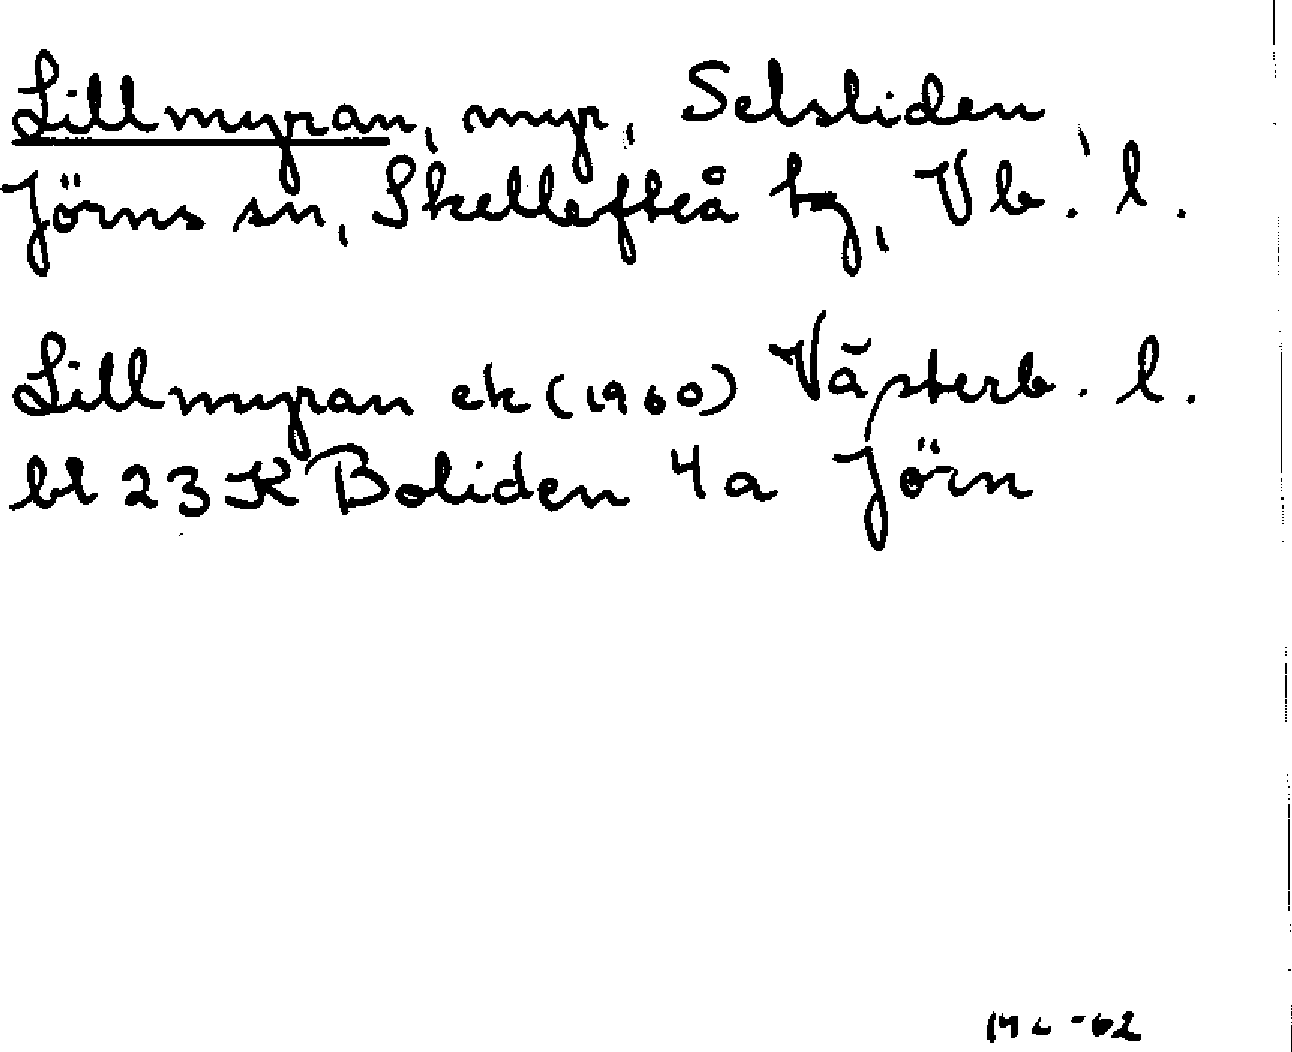 Lillmyran, myr, Selsliden,
Jörns sn, Skellefteå tg, Vb. l.
Lillmyran ek (1960) Västerb. l.
bl 23 K Boliden 4a Jörn
-62